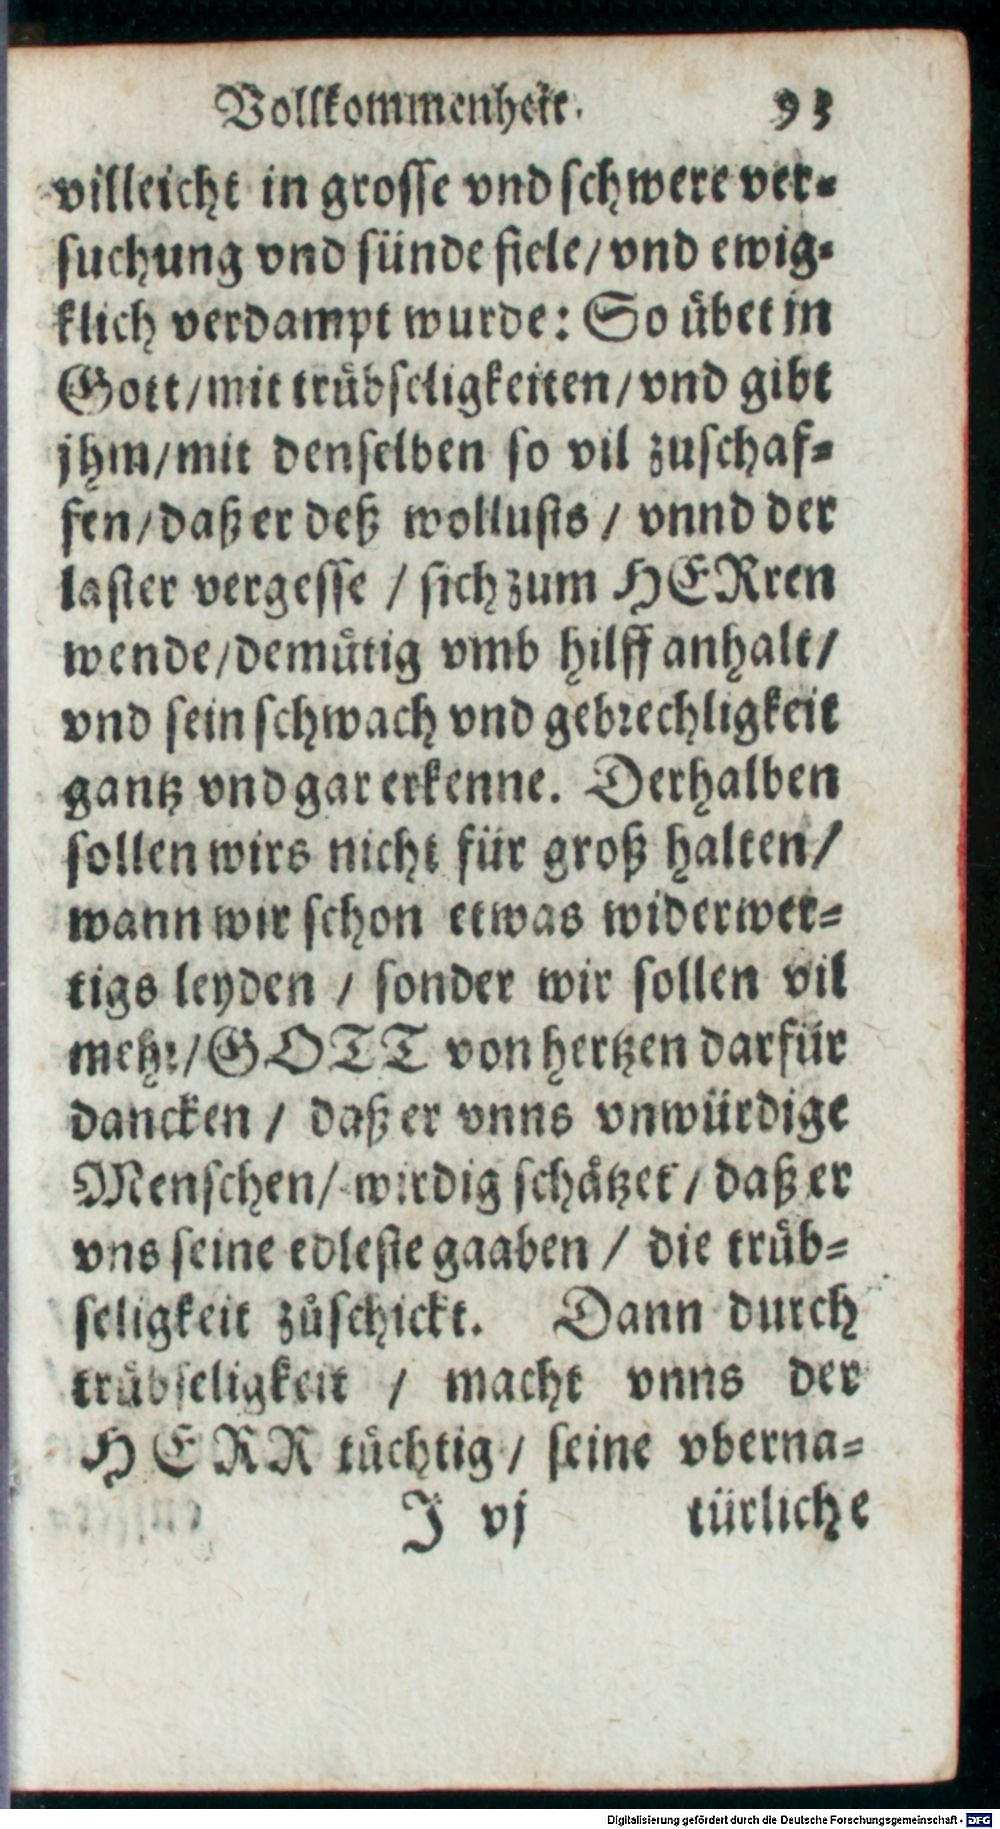 Vollkommenheit. 93
villeicht in grosse vnd schwere ver-
suchung vnd sünde fiele/vnd ewig-
klich verdampt wurde: So uͤbet in
Gott/mit truͤbseligkeiten/vnd gibt
jhm/mit denselben so vil zuschaf-
fen/daß er deß wollusts / vnnd der
laster vergesse / sich zum HERren
wende/demuͤtig vmb hilff anhalt/
vnd sein schwach vnd gebrechligkeit
gantz vnd gar erkenne. Derhalben
sollen wirs nicht für groß halten/
wann wir schon etwas widerwer-
tigs leyden / sonder wir sollen vil
mehr/GOTT von hertzen darfür
dancken / daß er vnns vnwürdige
Menschen/ wirdig schaͤtzet / daß er
vns seine edleste gaaben / die truͤb-
seligkeit zuͦschickt. Dann durch
truͤbseligkeit / macht vnns der
HERR tuͤchtig / seine vberna-
J vj türliche
Digitalisierung gefördert durch die Deutsche Forschungsgemeinschaft - DFG